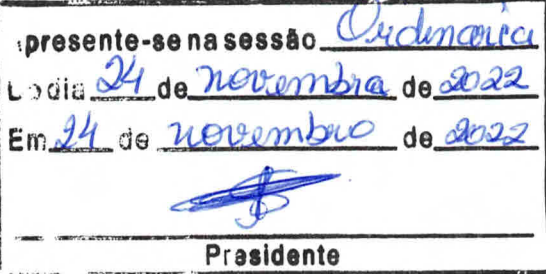 apresente-se na sessão Ordinária
do dia 24 de novembro de 2022
Em 24 de novembro de 2022
Presidente